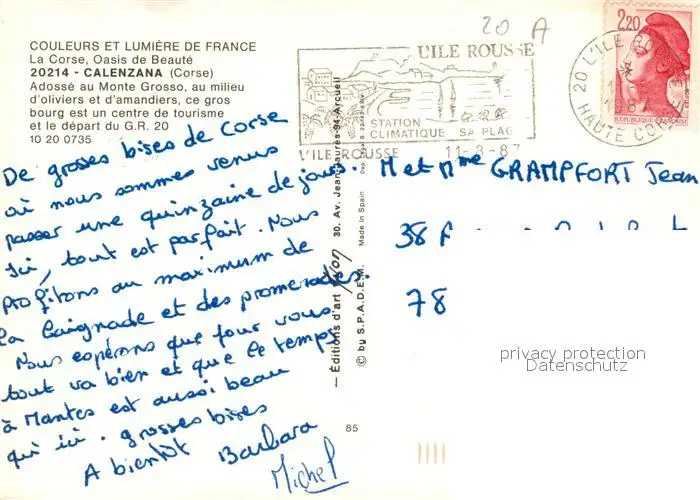 COULEURS ET LUMIÈRE DE FRANCE
La Corse, Oasis de Beauté
20214 - CALENZANA (Corse)
Adossé au Monte Grosso, au milieu
d'oliviers et d'amandiers, ce gros
bourg est un centre de tourisme
et le départ du G.R. 20
10 20 0735
De grosses bises de Corse
où nous sommes venus
passer une quinzaine de jours.
Ici, tout est parfait. Nous
profitons au maximum de
la baignade et des promenades.
Nous espérons que pour vous
tout va bien et que le temps
à Mantes est aussi beau
qui ici. grosses bises
A bientôt Barbara
Michel
20 A
L'ILE ROUSSE
STATION
CLIMATIQUE SA PLAGE
L'ILE ROUSSE 11-8-87
20 L'ILE ROUSSE
HAUTE CORSE
2,20
REPUBLIQUE FRANÇAISE
— Éditions d'art yvon 30. Av. Jean-Jaurès-94-Arcueil
© by S.P.A.D.E.M. Made in Spain
85
M et Mme GRAMPFORT Jean
38
78
privacy protection
Datenschutz